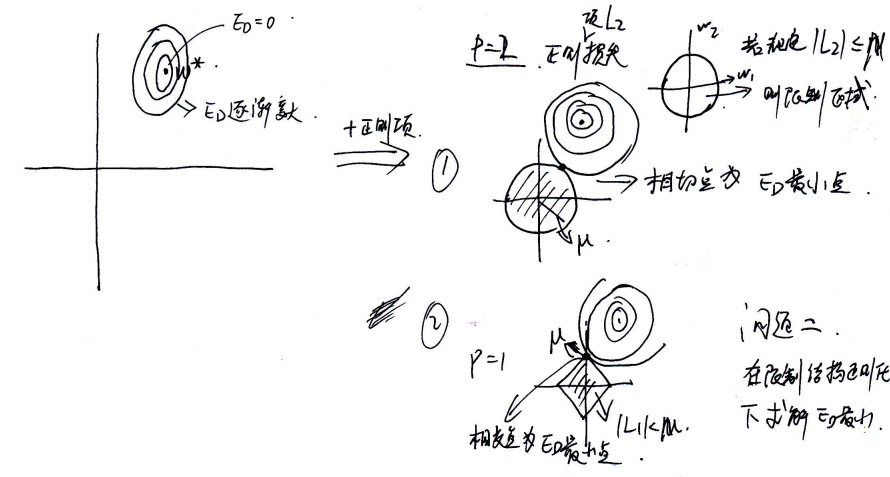 E_D=0
w*
E_D逐渐变大
+正则项
①
P=2 正则项L_2损失
w_2
w_1
若规定|L_2|≤μ
则限制区域
相切点为 E_D最小点.
μ.
②
P=1
μ
|L_1|<μ.
相交点为E_D最小点.
问题二.
在限制结构正则化
下求解 E_D最小.